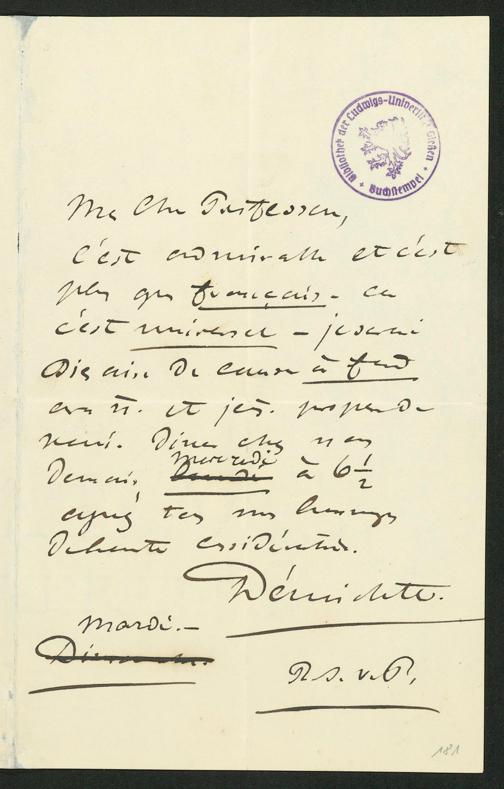 Bibliothek der Ludwigs-Universität Gießen
Buchstempel
Mon Cher Professeur,
C'est admirable et c'est
plus que français - car
c'est universel - je serai
bien aise de causer à fond
avec v. et je v. propose de
venir dîner chez nous
demain mercredi à 6 1/2
agréez tous mes hommages
de haute considération.
mardi.-
R.S.V.P.
181